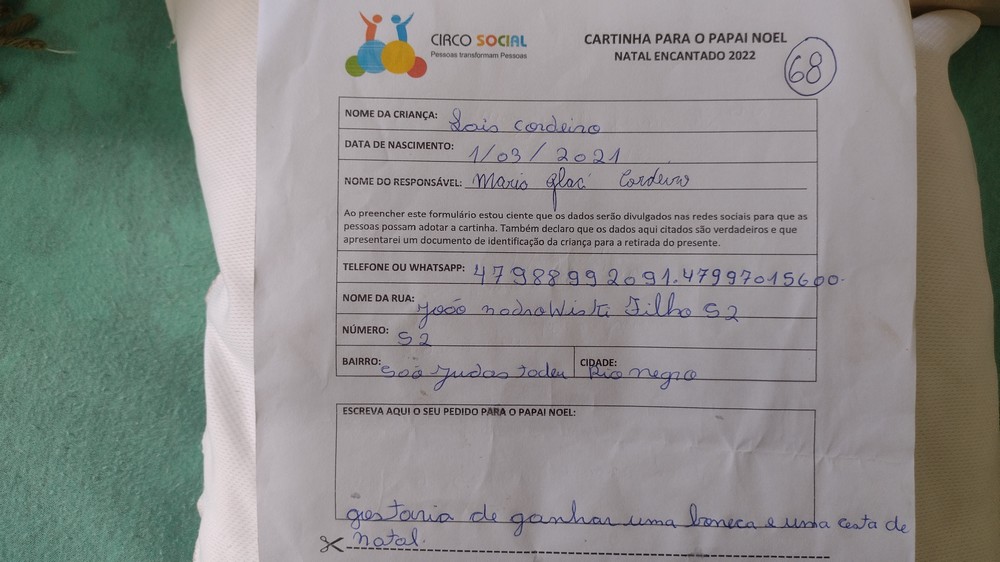 CIRCO SOCIAL
Pessoas transformam Pessoas
CARTINHA PARA O PAPAI NOEL
NATAL ENCANTADO 2022
68
NOME DA CRIANÇA: Lais Cordeiro
DATA DE NASCIMENTO: 1/03/2021
NOME DO RESPONSÁVEL: Mario Glaci Cordeiro
Ao preencher este formulário estou ciente que os dados serão divulgados nas redes sociais para que as
pessoas possam adotar a cartinha. Também declaro que os dados aqui citados são verdadeiros e que
apresentarei um documento de identificação da criança para a retirada do presente.
TELEFONE OU WHATSAPP: 47988992091.47997015600.
NOME DA RUA: João Filho 52
NÚMERO: 52
BAIRRO: São Judas tadeu CIDADE: Rio negro
ESCREVA AQUI O SEU PEDIDO PARA O PAPAI NOEL:
gostaria de ganhar uma boneca e uma cesta de
natal.